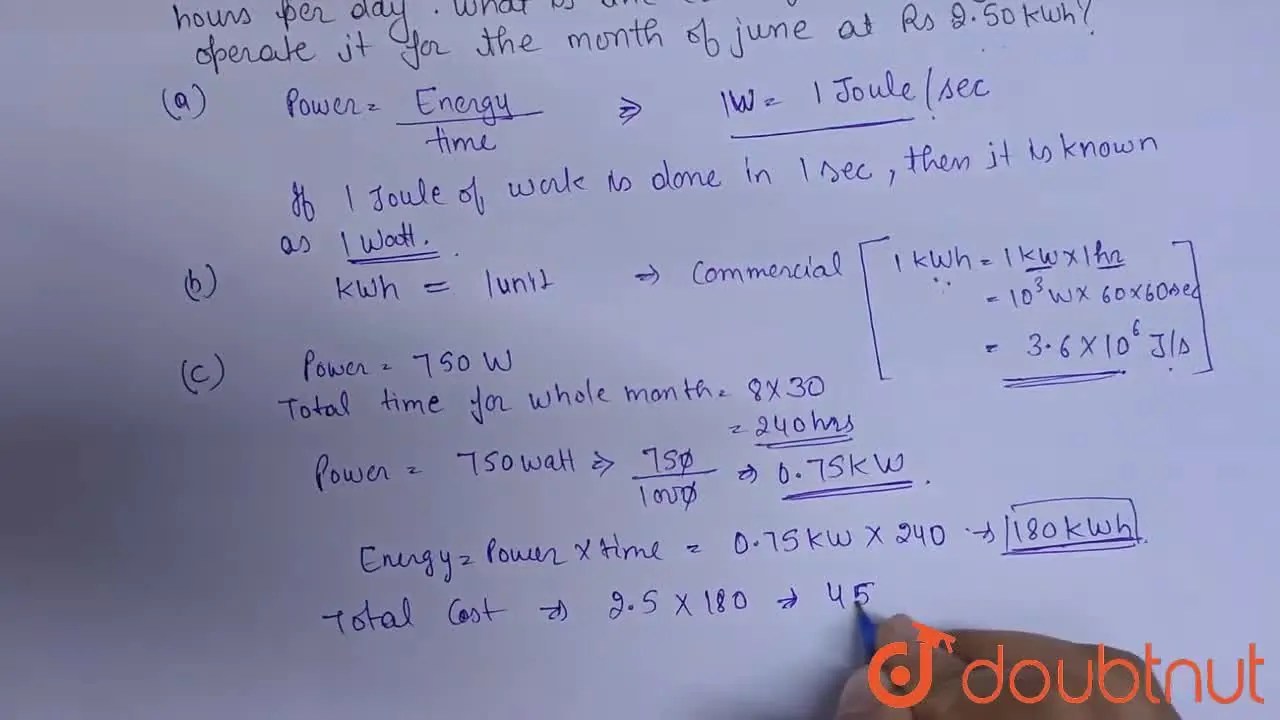 hours per day. What is the
operate it for the month of june at Rs 2.50 kWh?
(a) Power = Energy / time ⇒ 1W = 1 Joule/sec
If 1 Joule of work is done in 1 sec, then it is known
as 1 Watt.
(b) kWh = 1unit ⇒ Commercial [1 kWh = 1 kW x 1hr
= 10³ W x 60 x 60 sec
= 3.6 X 10⁶ J/s]
(c) Power = 750 W
Total time for whole month = 8 X 30
= 240 hrs
Power = 750 watt ⇒ 750/1000 ⇒ 0.75 KW.
Energy = Power x time = 0.75 KW X 240 ⇒ 180 kWh.
Total Cost ⇒ 2.5 X 180 ⇒ 45
doubtnut